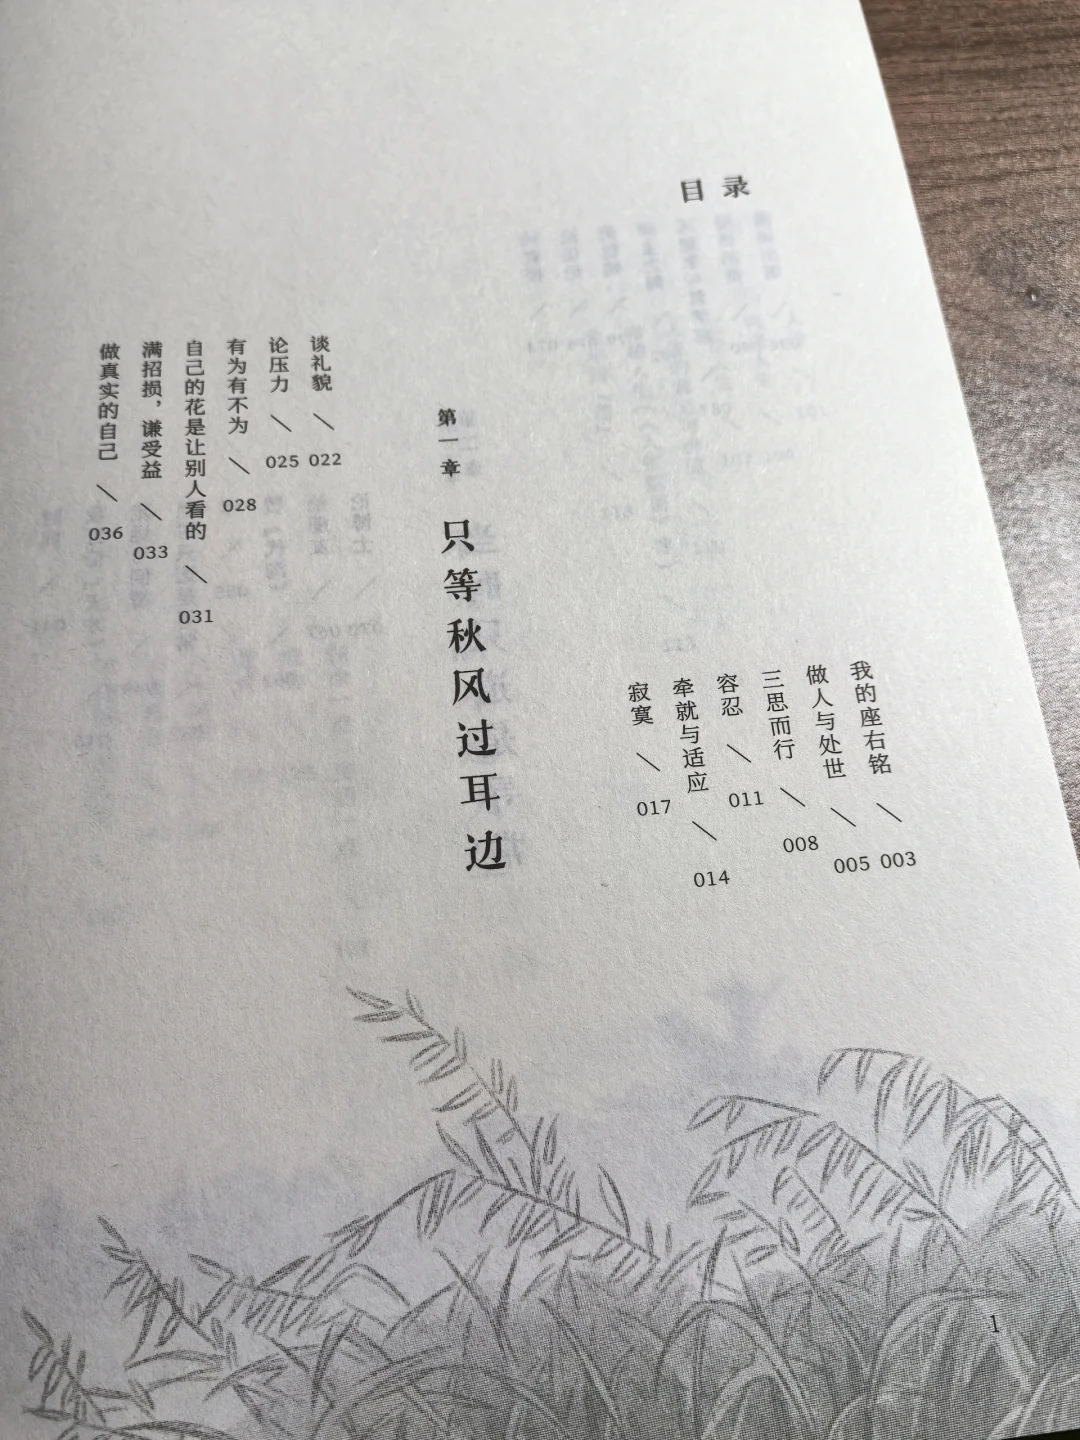 目录
我的座右铭 \ 003
做人与处世 \ 005
三思而行 \ 008
容忍 \ 011
牵就与适应 \ 014
寂寞 \ 017
第一章 只等秋风过耳边
谈礼貌 \ 022
论压力 \ 025
有为有不为 \ 028
自己的花是让别人看的 \ 031
满招损，谦受益 \ 033
做真实的自己 \ 036
1